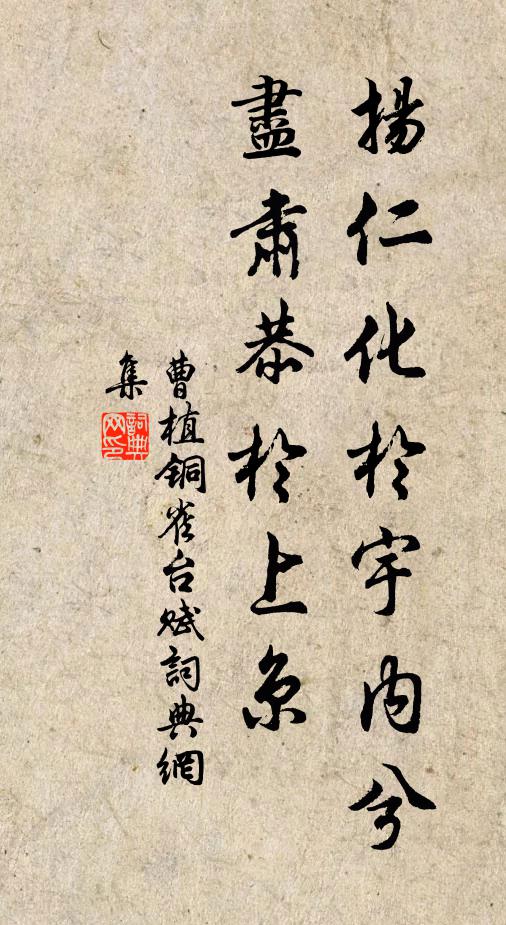 揚仁化於宇内兮
盡肅恭於上京
曹植銅雀台赋詞典網
集
詞典
网印